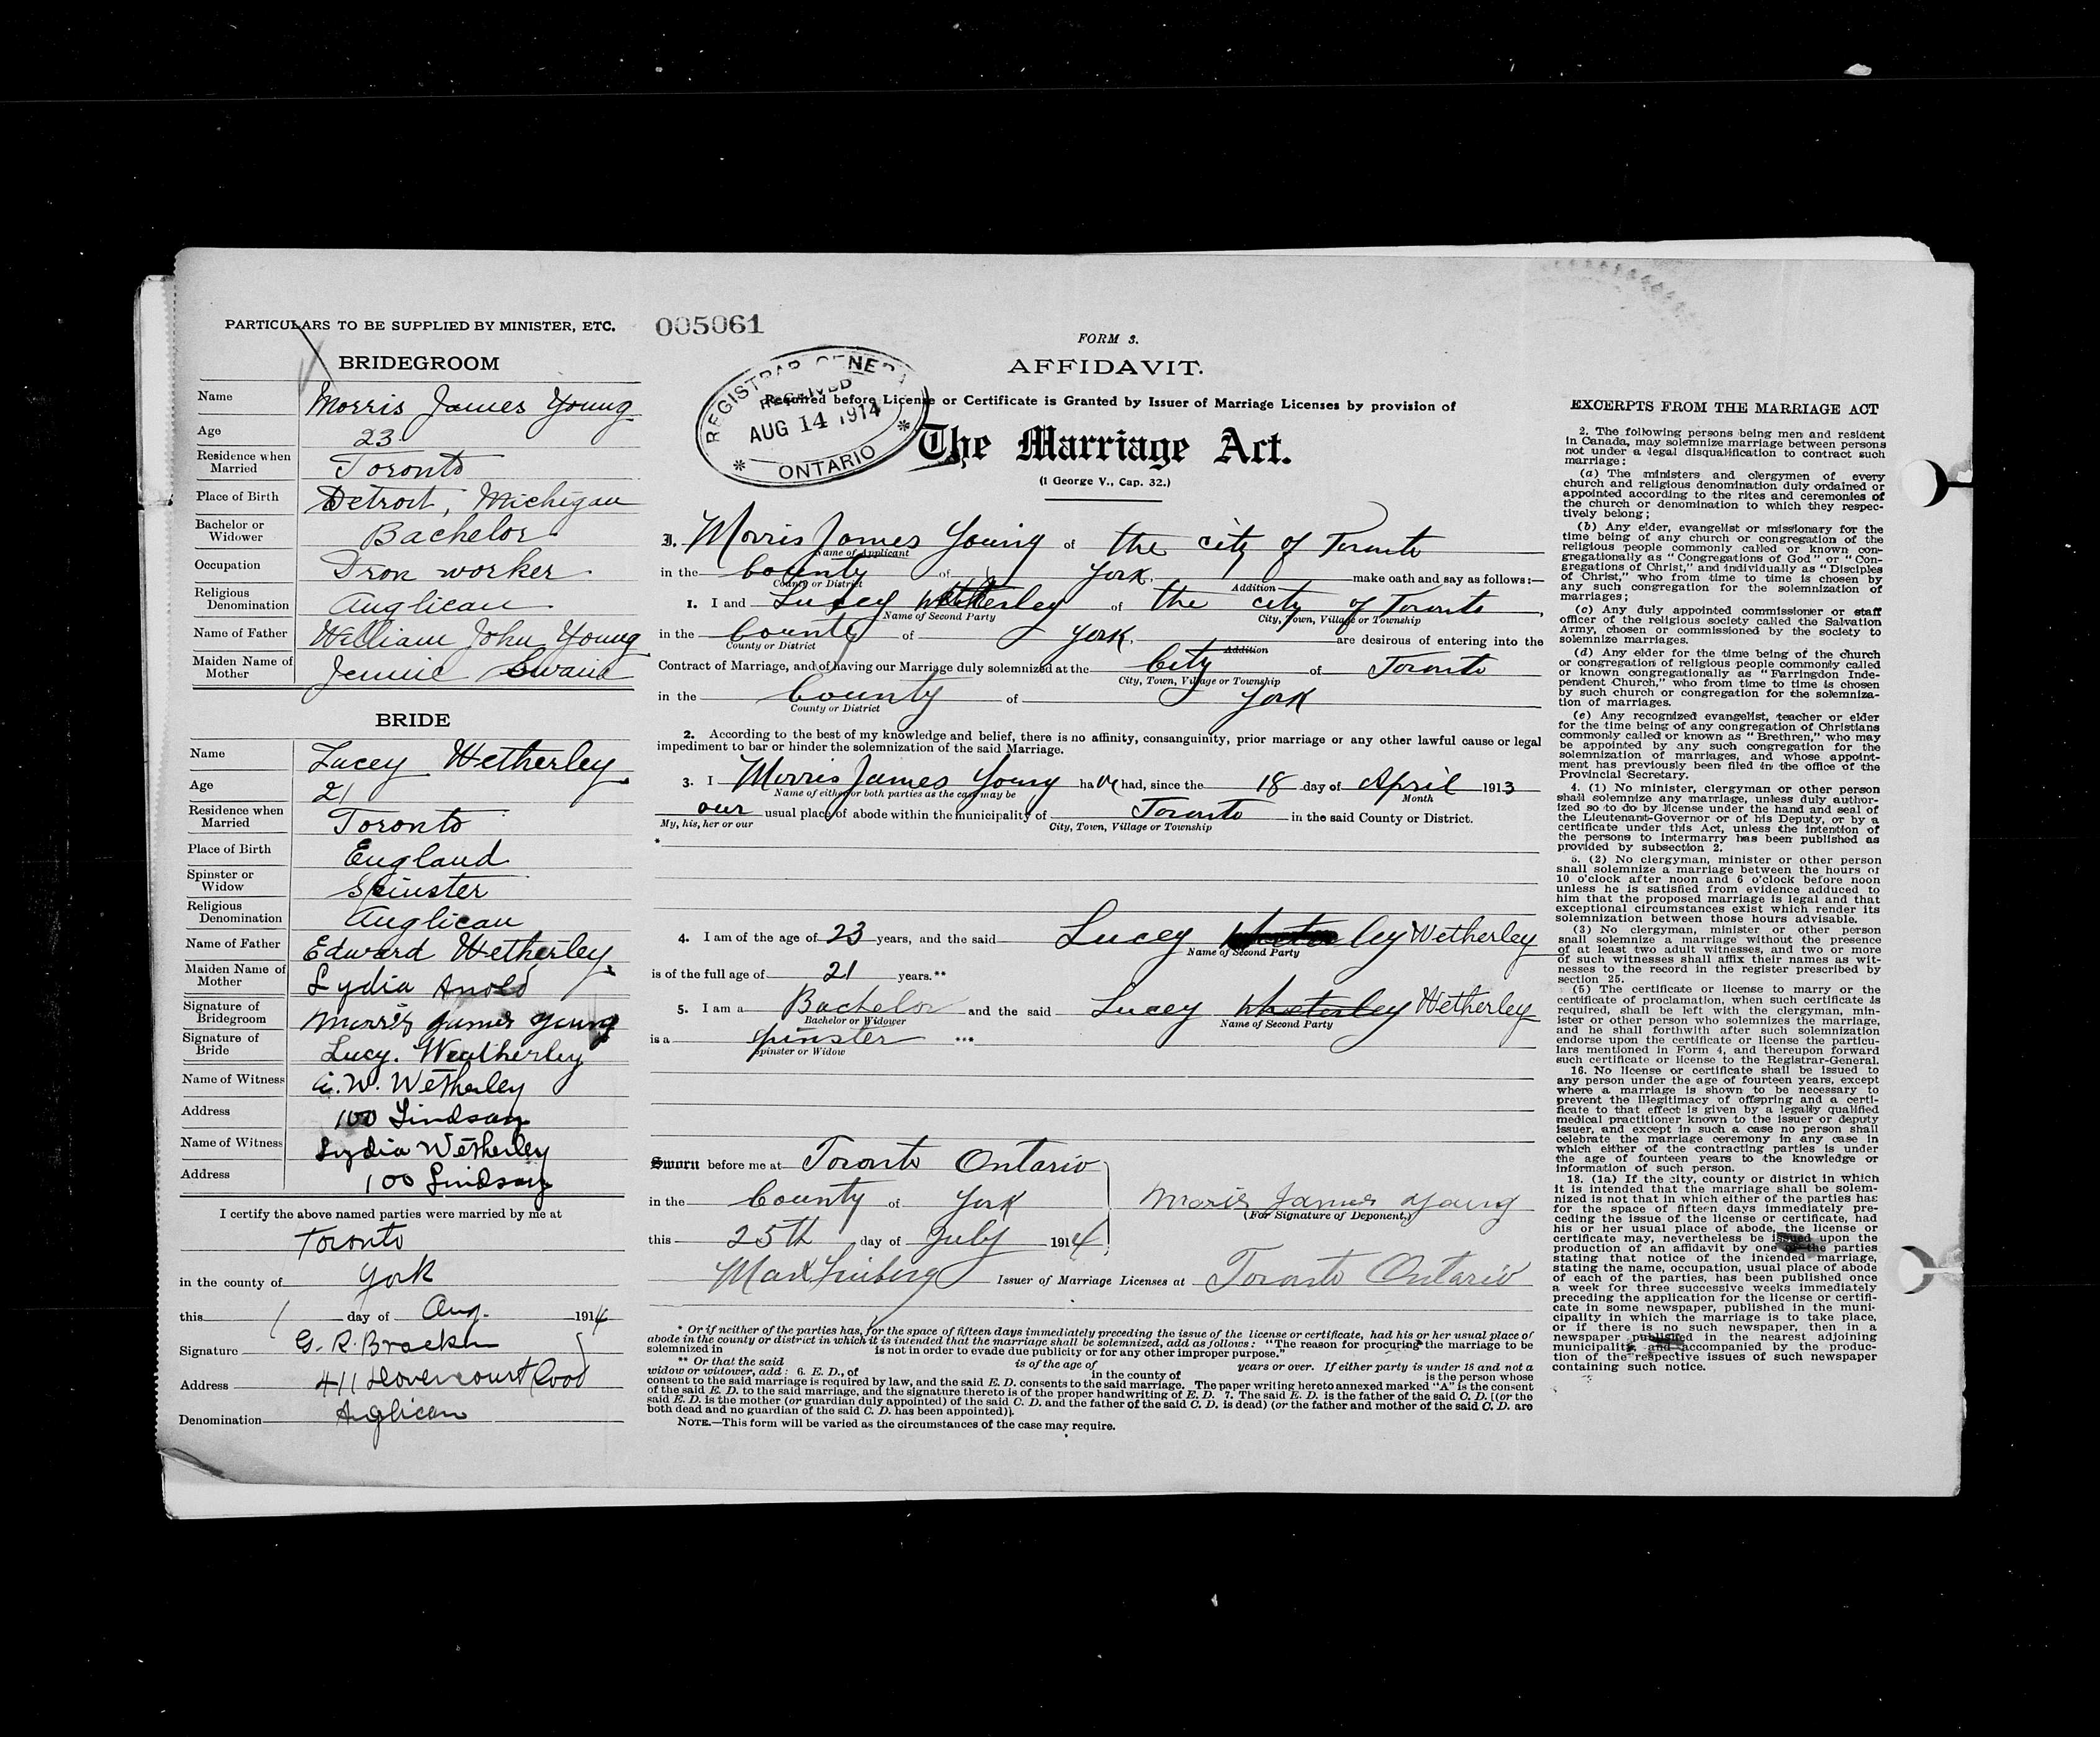 PARTICULARS TO BE SUPPLIED BY MINISTER, ETC.
BRIDEGROOM
Name Morris James Young
Age 23
Residence when Married Toronto
Place of Birth Detroit, Michigan
Bachelor or Widower Bachelor
Occupation Iron worker
Religious Denomination Anglican
Name of Father William John Young
Maiden Name of Mother Jennie Swain
BRIDE
Name Lucey Wetherley
Age 21
Residence when Married Toronto
Place of Birth England
Spinster or Widow Spinster
Religious Denomination Anglican
Name of Father Edward Wetherley
Maiden Name of Mother Lydia Arnold
Signature of Bridegroom Morris James Young
Signature of Bride Lucy. Weatherley
Name of Witness W. Wetherley
Address 100 Lindsay
Name of Witness Lydia Wetherley
Address 100 Lindsay
I certify the above named parties were married by me at
Toronto
in the county of York
this 1 day of Aug. 1914
Signature G. R. Bracken
Address 411 Dovercourt Road
Denomination Anglican
005061
REGISTRAR GENERAL
RECEIVED
AUG 14 1914
ONTARIO
FORM 3.
AFFIDAVIT.
Required before License or Certificate is Granted by Issuer of Marriage Licenses by provision of
The Marriage Act.
(1 George V., Cap. 32.)
I, Morris James Young of the city of Toronto
Name of Applicant
in the County of York. make oath and say as follows:—
County or District Addition
1. I and Lucey Wetherley of the city of Toronto,
Name of Second Party City, Town, Village or Township
in the County of York. are desirous of entering into the
County or District Addition
Contract of Marriage, and of having our Marriage duly solemnized at the City of Toronto
City, Town, Village or Township
in the County of York
County or District
2. According to the best of my knowledge and belief, there is no affinity, consanguinity, prior marriage or any other lawful cause or legal
impediment to bar or hinder the solemnization of the said Marriage.
3. I Morris James Young have had, since the 18 day of April 1913
Name of either or both parties as the case may be Month
our usual place of abode within the municipality of Toronto in the said County or District.
My, his, her or our City, Town, Village or Township
*
4. I am of the age of 23 years, and the said Lucey ley Wetherley
Name of Second Party
is of the full age of 21 years.**
5. I am a Bachelor and the said Lucey Wheterley Wetherley
Bachelor or Widower Name of Second Party
is a Spinster ***
Spinster or Widow
Sworn before me at Toronto Ontario
in the County of York
Morris James Young
(For Signature of Deponent.)
this 25th day of July 1914
Issuer of Marriage Licenses at Toronto Ontario
* Or if neither of the parties has, for the space of fifteen days immediately preceding the issue of the license or certificate, had his or her usual place of
abode in the county or district in which it is intended that the marriage shall be solemnized, add as follows: "The reason for procuring the marriage to be
solemnized in is not in order to evade due publicity or for any other improper purpose."
** Or that the said is of the age of years or over. If either party is under 18 and not a
widow or widower, add: 6. E. D., of in the county of is the person whose
consent to the said marriage is required by law, and the said E. D. consents to the said marriage. The paper writing hereto annexed marked "A" is the consent
of the said E. D. to the said marriage, and the signature thereto is of the proper handwriting of E. D. 7. The said E. D. is the father of the said C. D. [(or the
said E. D. is the mother (or guardian duly appointed) of the said C. D. and the father of the said C. D. is dead) (or the father and mother of the said C. D. are
both dead and no guardian of the said C. D. has been appointed)].
NOTE.—This form will be varied as the circumstances of the case may require.
EXCERPTS FROM THE MARRIAGE ACT
2. The following persons being men and resident
in Canada, may solemnize marriage between persons
not under a legal disqualification to contract such
marriage:
(a) The ministers and clergymen of every
church and religious denomination duly ordained or
appointed according to the rites and ceremonies of
the church or denomination to which they respec-
tively belong;
(b) Any elder, evangelist or missionary for the
time being of any church or congregation of the
religious people commonly called or known con-
gregationally as "Congregations of God" or "Con-
gregations of Christ," and individually as "Disciples
of Christ," who from time to time is chosen by
any such congregation for the solemnization of
marriages;
(c) Any duly appointed commissioner or staff
officer of the religious society called the Salvation
Army, chosen or commissioned by the society to
solemnize marriages.
(d) Any elder for the time being of the church
or congregation of religious people commonly called
or known congregationally as "Farringdon Inde-
pendent Church," who from time to time is chosen
by such church or congregation for the solemniza-
tion of marriages.
(e) Any recognized evangelist, teacher or elder
for the time being of any congregation of Christians
commonly called or known as "Brethren," who may
be appointed by any such congregation for the
solemnization of marriages, and whose appoint-
ment has previously been filed in the office of the
Provincial Secretary.
4. (1) No minister, clergyman or other person
shall solemnize any marriage, unless duly author-
ized so to do by license under the hand and seal of
the Lieutenant-Governor or of his Deputy, or by a
certificate under this Act, unless the intention of
the persons to intermarry has been published as
provided by subsection 2.
5. (2) No clergyman, minister or other person
shall solemnize a marriage between the hours of
10 o'clock after noon and 6 o'clock before noon
unless he is satisfied from evidence adduced to
him that the proposed marriage is legal and that
exceptional circumstances exist which render its
solemnization between those hours advisable.
(3) No clergyman, minister or other person
shall solemnize a marriage without the presence
of at least two adult witnesses, and two or more
of such witnesses shall affix their names as wit-
nesses to the record in the register prescribed by
section 25.
(5) The certificate or license to marry or the
certificate of proclamation, when such certificate is
required, shall be left with the clergyman, min-
ister or other person who solemnizes the marriage,
and he shall forthwith after such solemnization
endorse upon the certificate or license the particu-
lars mentioned in Form 4, and thereupon forward
such certificate or license to the Registrar-General.
16. No license or certificate shall be issued to
any person under the age of fourteen years, except
where a marriage is shown to be necessary to
prevent the illegitimacy of offspring and a certi-
ficate to that effect is given by a legally qualified
medical practitioner known to the issuer or deputy
issuer, and except in such a case no person shall
celebrate the marriage ceremony in any case in
which either of the contracting parties is under
the age of fourteen years to the knowledge or
information of such person.
18. (1a) If the city, county or district in which
it is intended that the marriage shall be solem-
nized is not that in which either of the parties has
for the space of fifteen days immediately pre-
ceding the issue of the license or certificate, had
his or her usual place of abode, the license or
certificate may, nevertheless be issued upon the
production of an affidavit by one of the parties
stating that notice of the intended marriage,
stating the name, occupation, usual place of abode
of each of the parties, has been published once
a week for three successive weeks immediately
preceding the application for the license or certifi-
cate in some newspaper, published in the muni-
cipality in which the marriage is to take place,
or if there is no such newspaper, then in a
newspaper published in the nearest adjoining
municipality, and accompanied by the produc-
tion of the respective issues of such newspaper
containing such notice.